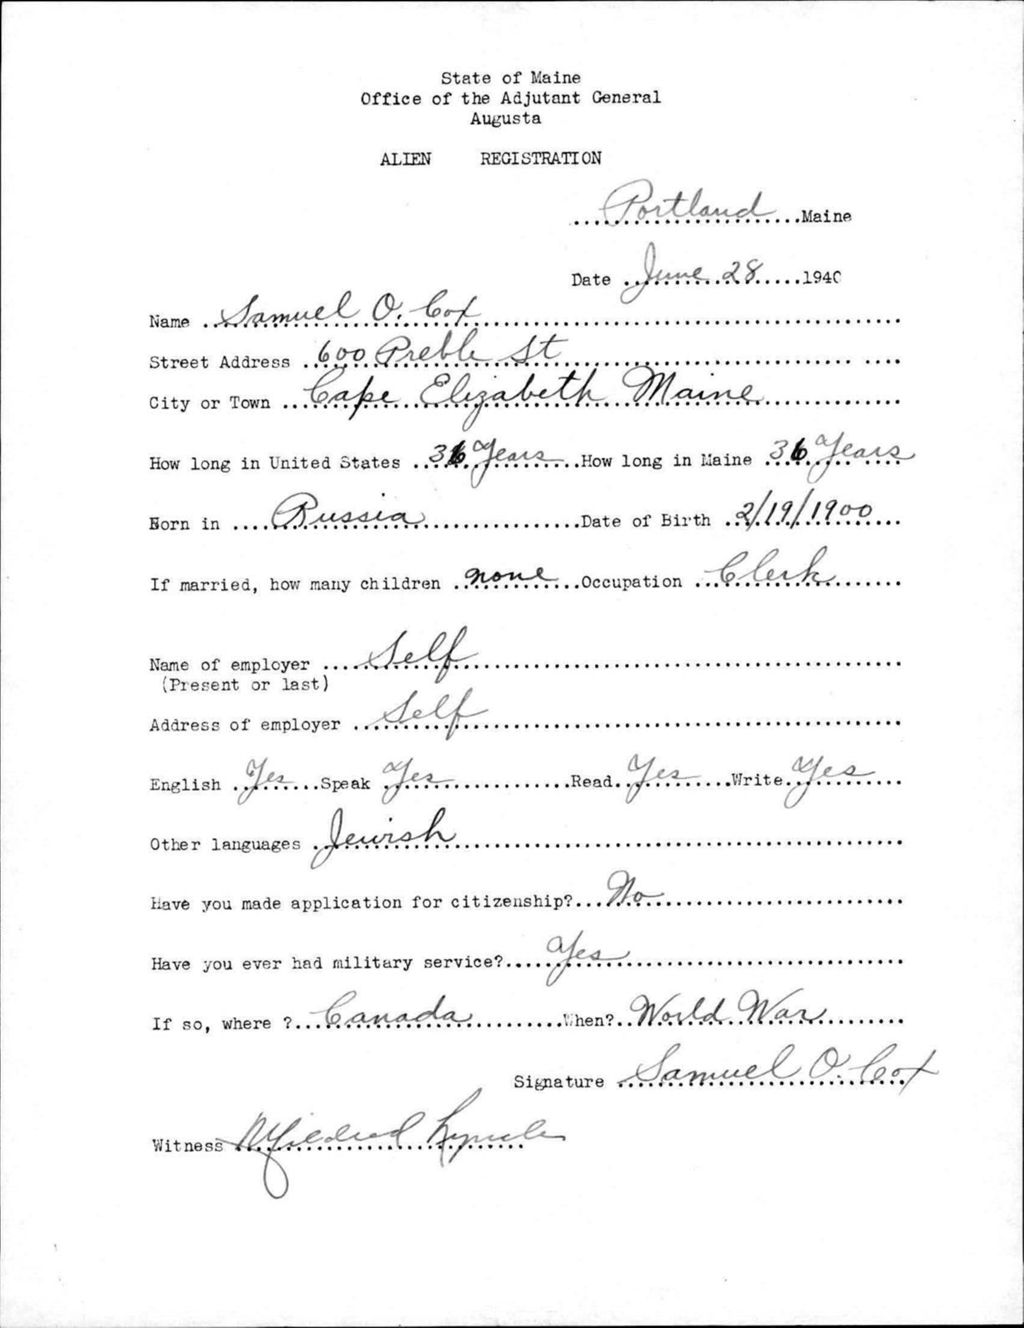 State of Maine
Office of the Adjutant General
Augusta
ALIEN REGISTRATION
Portland Maine
Date June 28 1940
Name Samuel O. Cox
Street Address 600 Preble St
City or Town Cape Elizabeth Maine
How long in United States 36 Years How long in Maine 36 Years
Born in Russia Date of Birth 2/19/1900
If married, how many children none Occupation Clerk
Name of employer Self
(Present or last)
Address of employer Self
English Yes Speak Yes Read Yes Write Yes
Other languages Jewish
Have you made application for citizenship? No
Have you ever had military service? Yes
If so, where ? Canada When? World War
Signature Samuel O. Cox
Witness Mildred